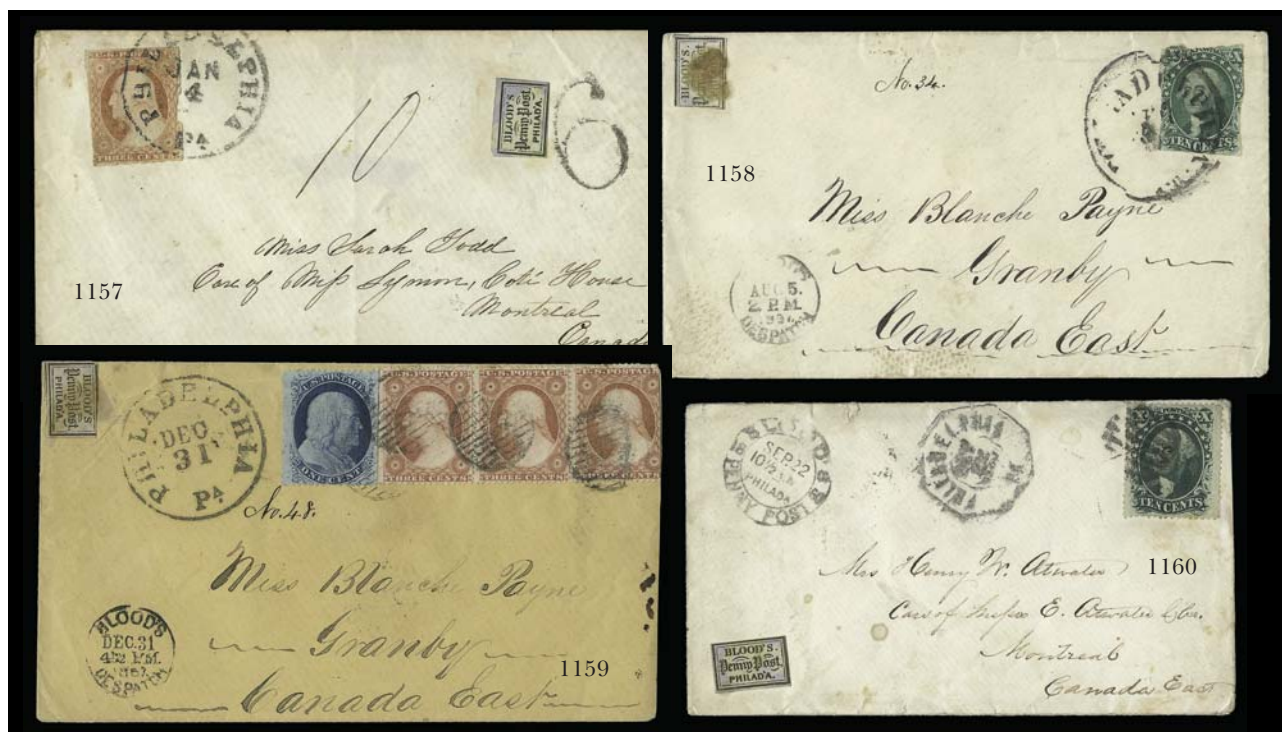 PHILADELPHIA
JAN
PA
THREE CENTS
10
BLOOD'S
Penny Post.
PHILAD'A.
6
Miss Sarah Todd
Care of Miss Symon, Coté House
Montreal
Canad
1157
BLOOD'S
Penny Post.
PHILAD'A.
No. 34.
TEN CENTS
1158
Miss Blanche Payne
Granby
Canada East
AUG 5.
2 P.M.
DESPATCH
BLOOD'S
Penny Post.
PHILAD'A.
PHILADELPHIA
DEC
31
PA
U.S. POSTAGE
ONE CENT
U.S. POSTAGE
THREE CENTS
U.S. POSTAGE
THREE CENTS
U.S. POSTAGE
THREE CENTS
No. 48.
Miss Blanche Payne
Granby
Canada East
BLOOD'S
DEC. 31
4½ P.M.
DESPATCH
1159
BLOOD'S
SEP 22
10½
PHILADA
PENNY POST
PHILADELPHIA
TEN CENTS
Mrs Henry W. Atwater
Care of E. Atwater & Co.
Montreal
Canada East
1160
BLOOD'S.
Penny Post.
PHILAD'A.